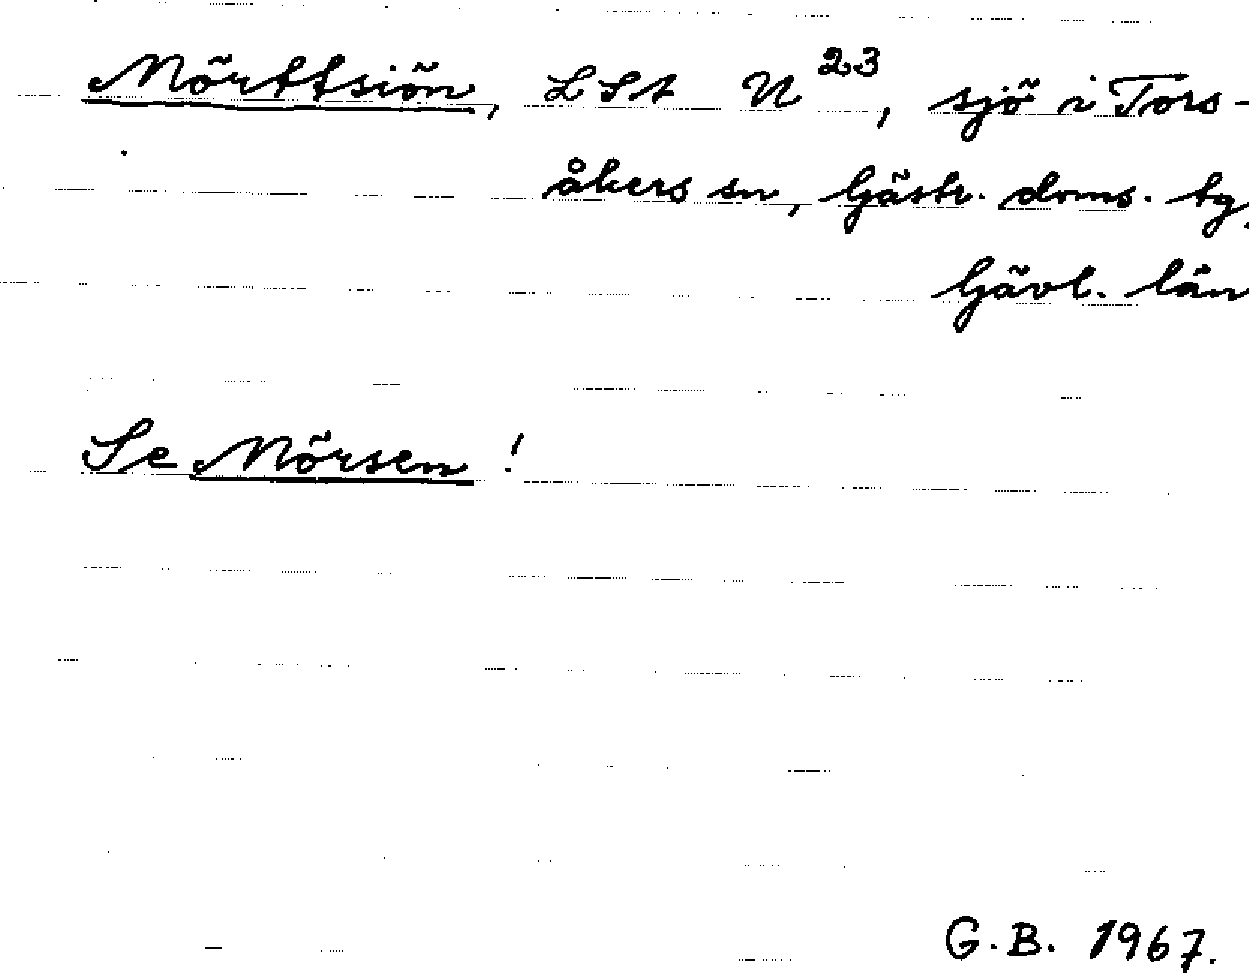 Mörttsiön, LSt N23, sjö i Tors-
åkers sn, Gästr. doms. tg,
Gävl. län
Se Mörsen !
G.B. 1967.